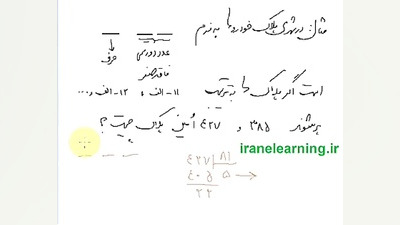 مثال: در شهری پلاک خودروها به فرم
عدد دو رقمی
فاقد صفر
حرف
است اگر پلاک ها به ترتیب ۱۱-الف، ۱۲-الف و...
پر شوند ۳۸۵ و ۴۲۷ اُمین پلاک چیست؟
iranelearning.ir
۴۲۷ | ۸۱
۴۰۵ ۵
۲۲